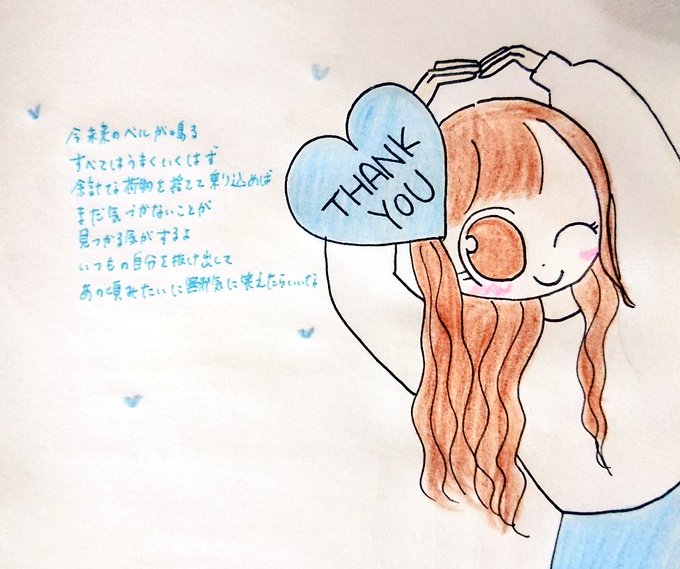 今 未来のベルが鳴る
すべてはうまくいくはず
余計な荷物を捨てて乗り込めば
まだ気づかないことが
見つかる気がするよ
いつもの自分を抜け出して
あの頃みたいに無邪気に笑えたらいいな
THANK
YOU